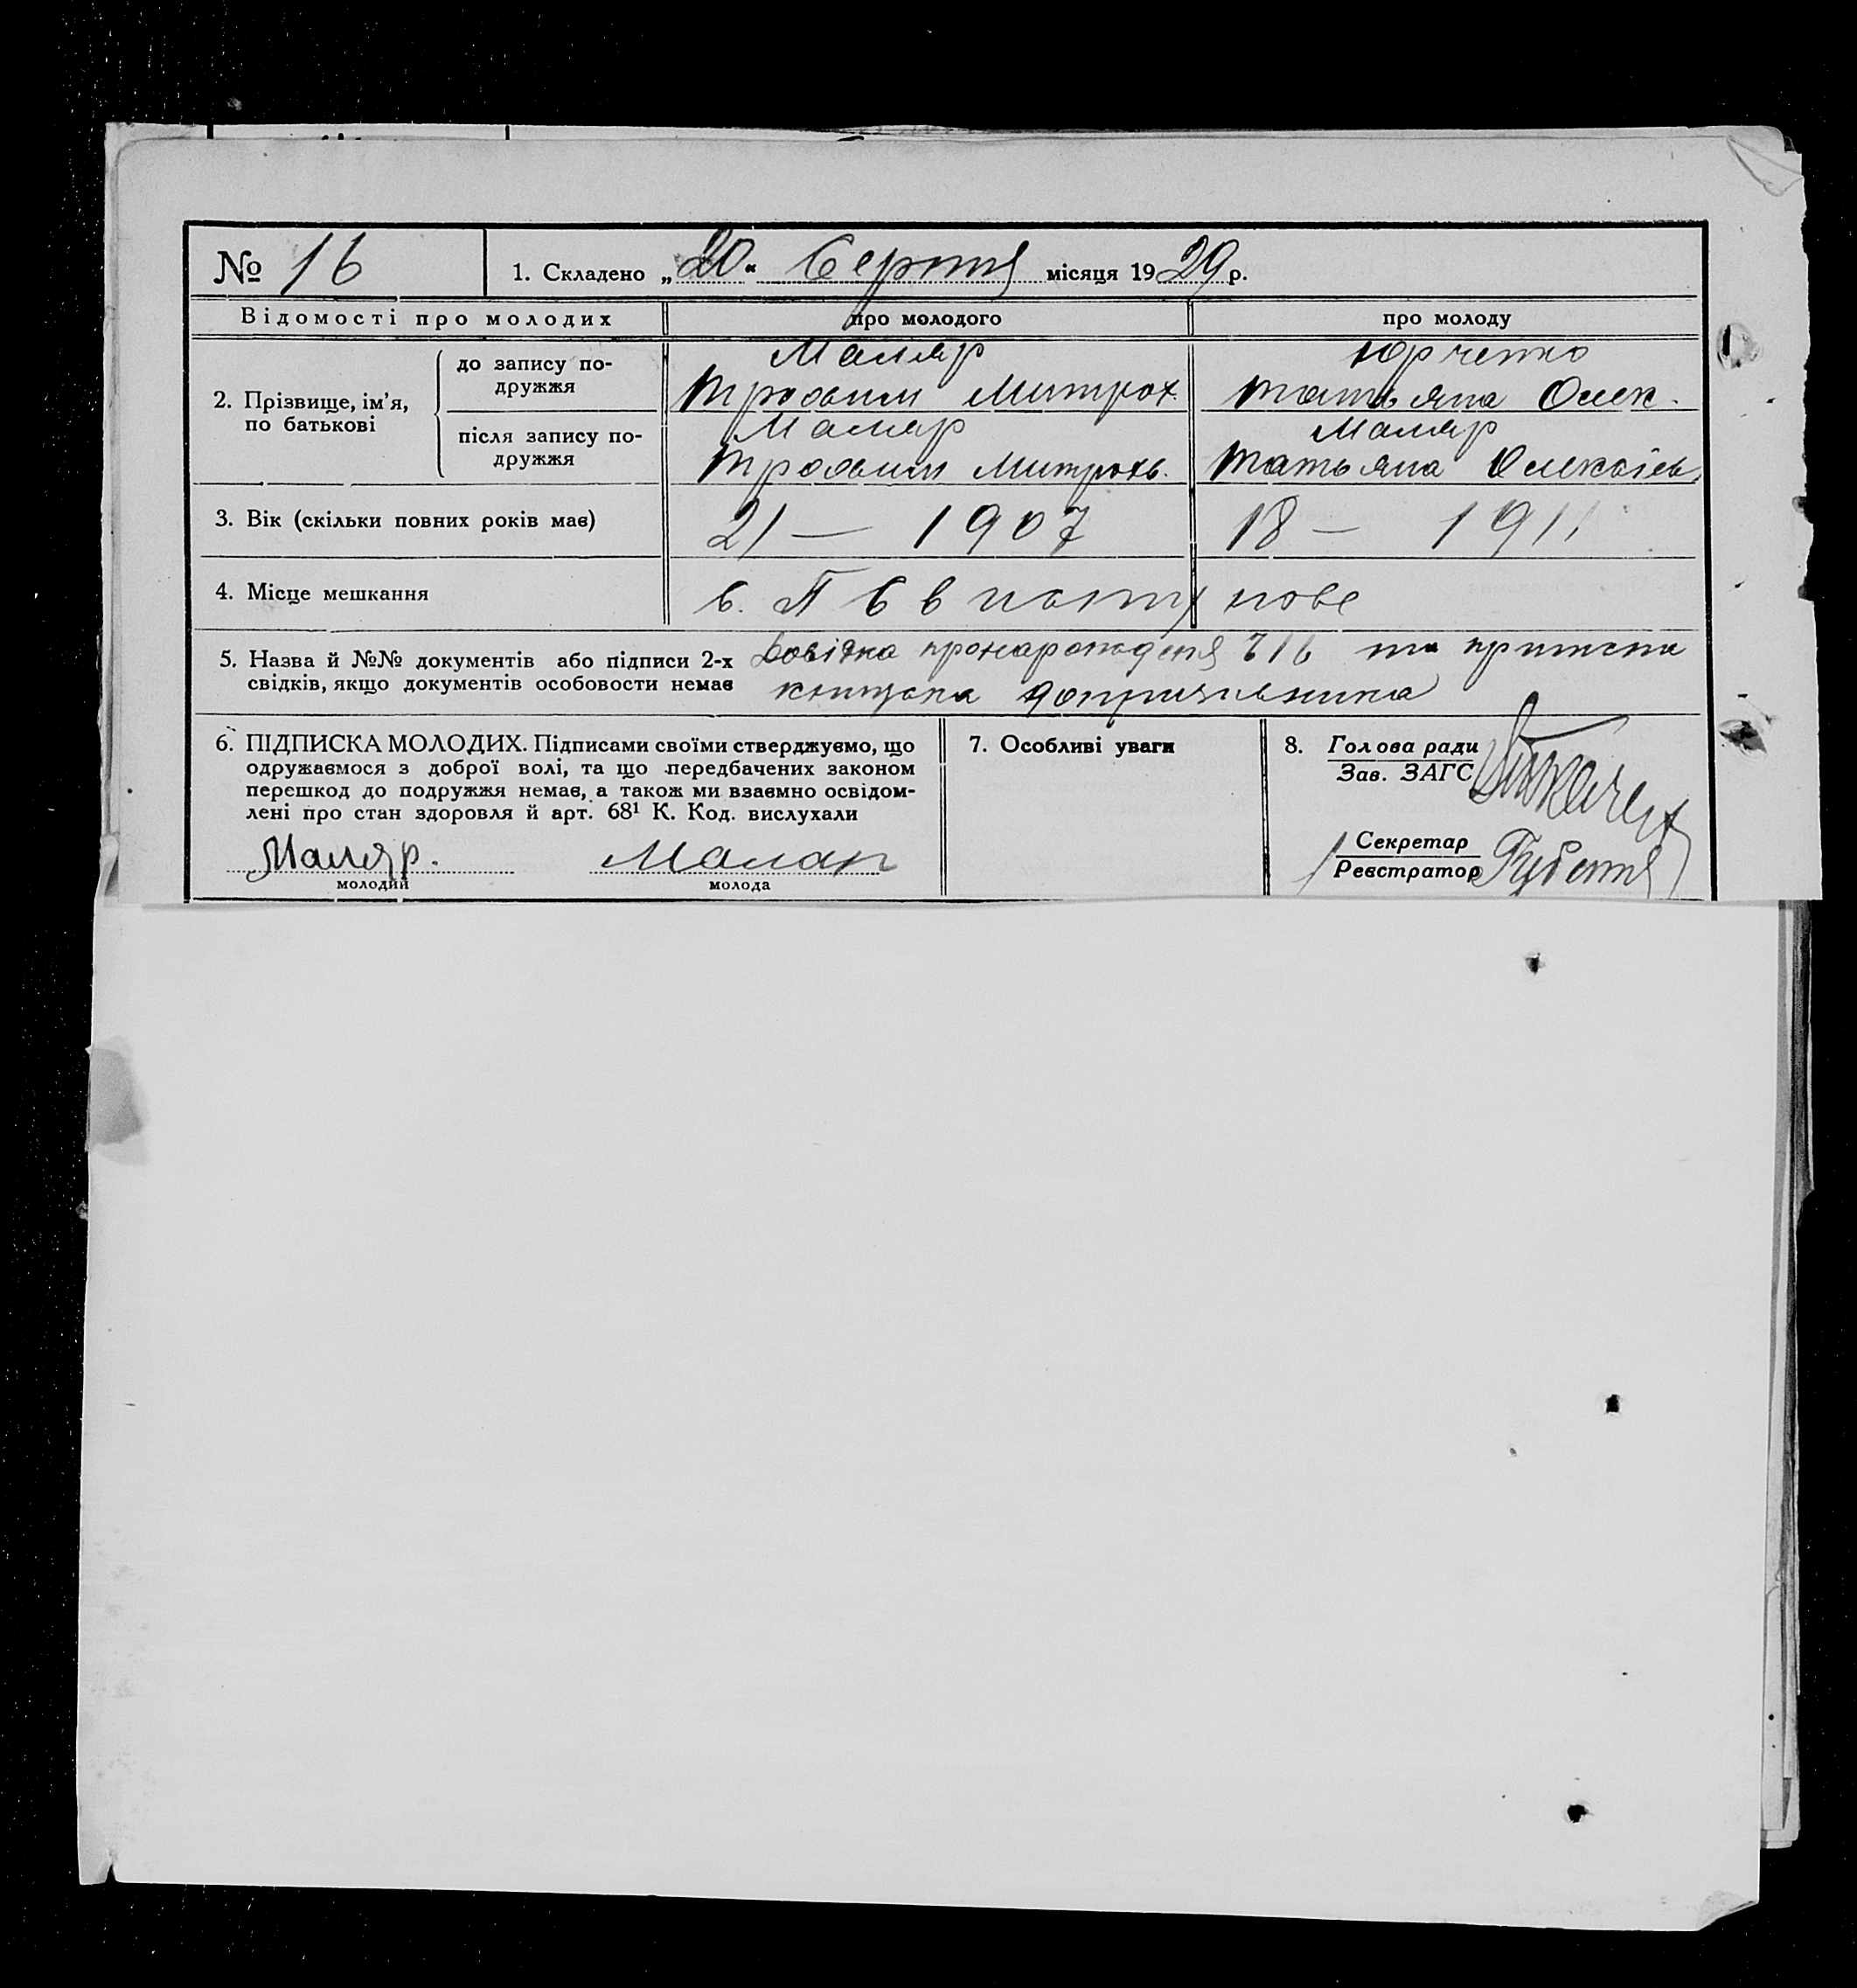 № 16
1. Складено „20“ Серпня місяця 1929 р.
Відомості про молодих
про молодого
про молоду
2. Прізвище, ім’я, по батькові
до запису подружжя
Маляр
Трохвим Митрох.
Юрченко
Татьяна Олек.
після запису подружжя
Маляр
Трохвим Митрохв.
Маляр
Татьяна Олексіев.
3. Вік (скільки повних років має)
21 — 1907
18 — 1911
4. Місце мешкання
с.
5. Назва й №№ документів або підписи 2-х
свідків, якщо документів особовости немає
Довідка про народження 716 та приписна
книжка допризивника
6. ПІДПИСКА МОЛОДИХ. Підписами своїми стверджуємо, що
одружаємося з доброї волі, та що передбачених законом
перешкод до подружжя немає, а також ми взаємно освідом-
лені про стан здоровля й арт. 68¹ К. Код. вислухали
Маляр.
молодий
Маляр
молода
7. Особливі уваги
8. Голова ради
Зав. ЗАГС
Секретар
Реєстратор